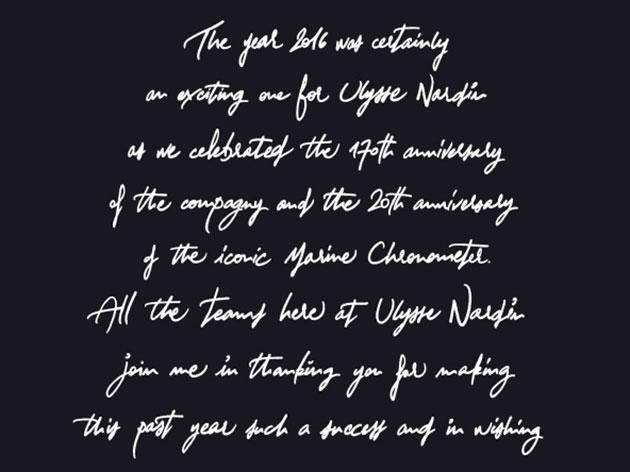 The year 2016 was certainly
an exciting one for Ulysse Nardin
as we celebrated the 170th anniversary
of the compagny and the 20th anniversary
of the iconic Marine Chronometer.
All the teams here at Ulysse Nardin
join me in thanking you for making
this past year such a success and in wishing